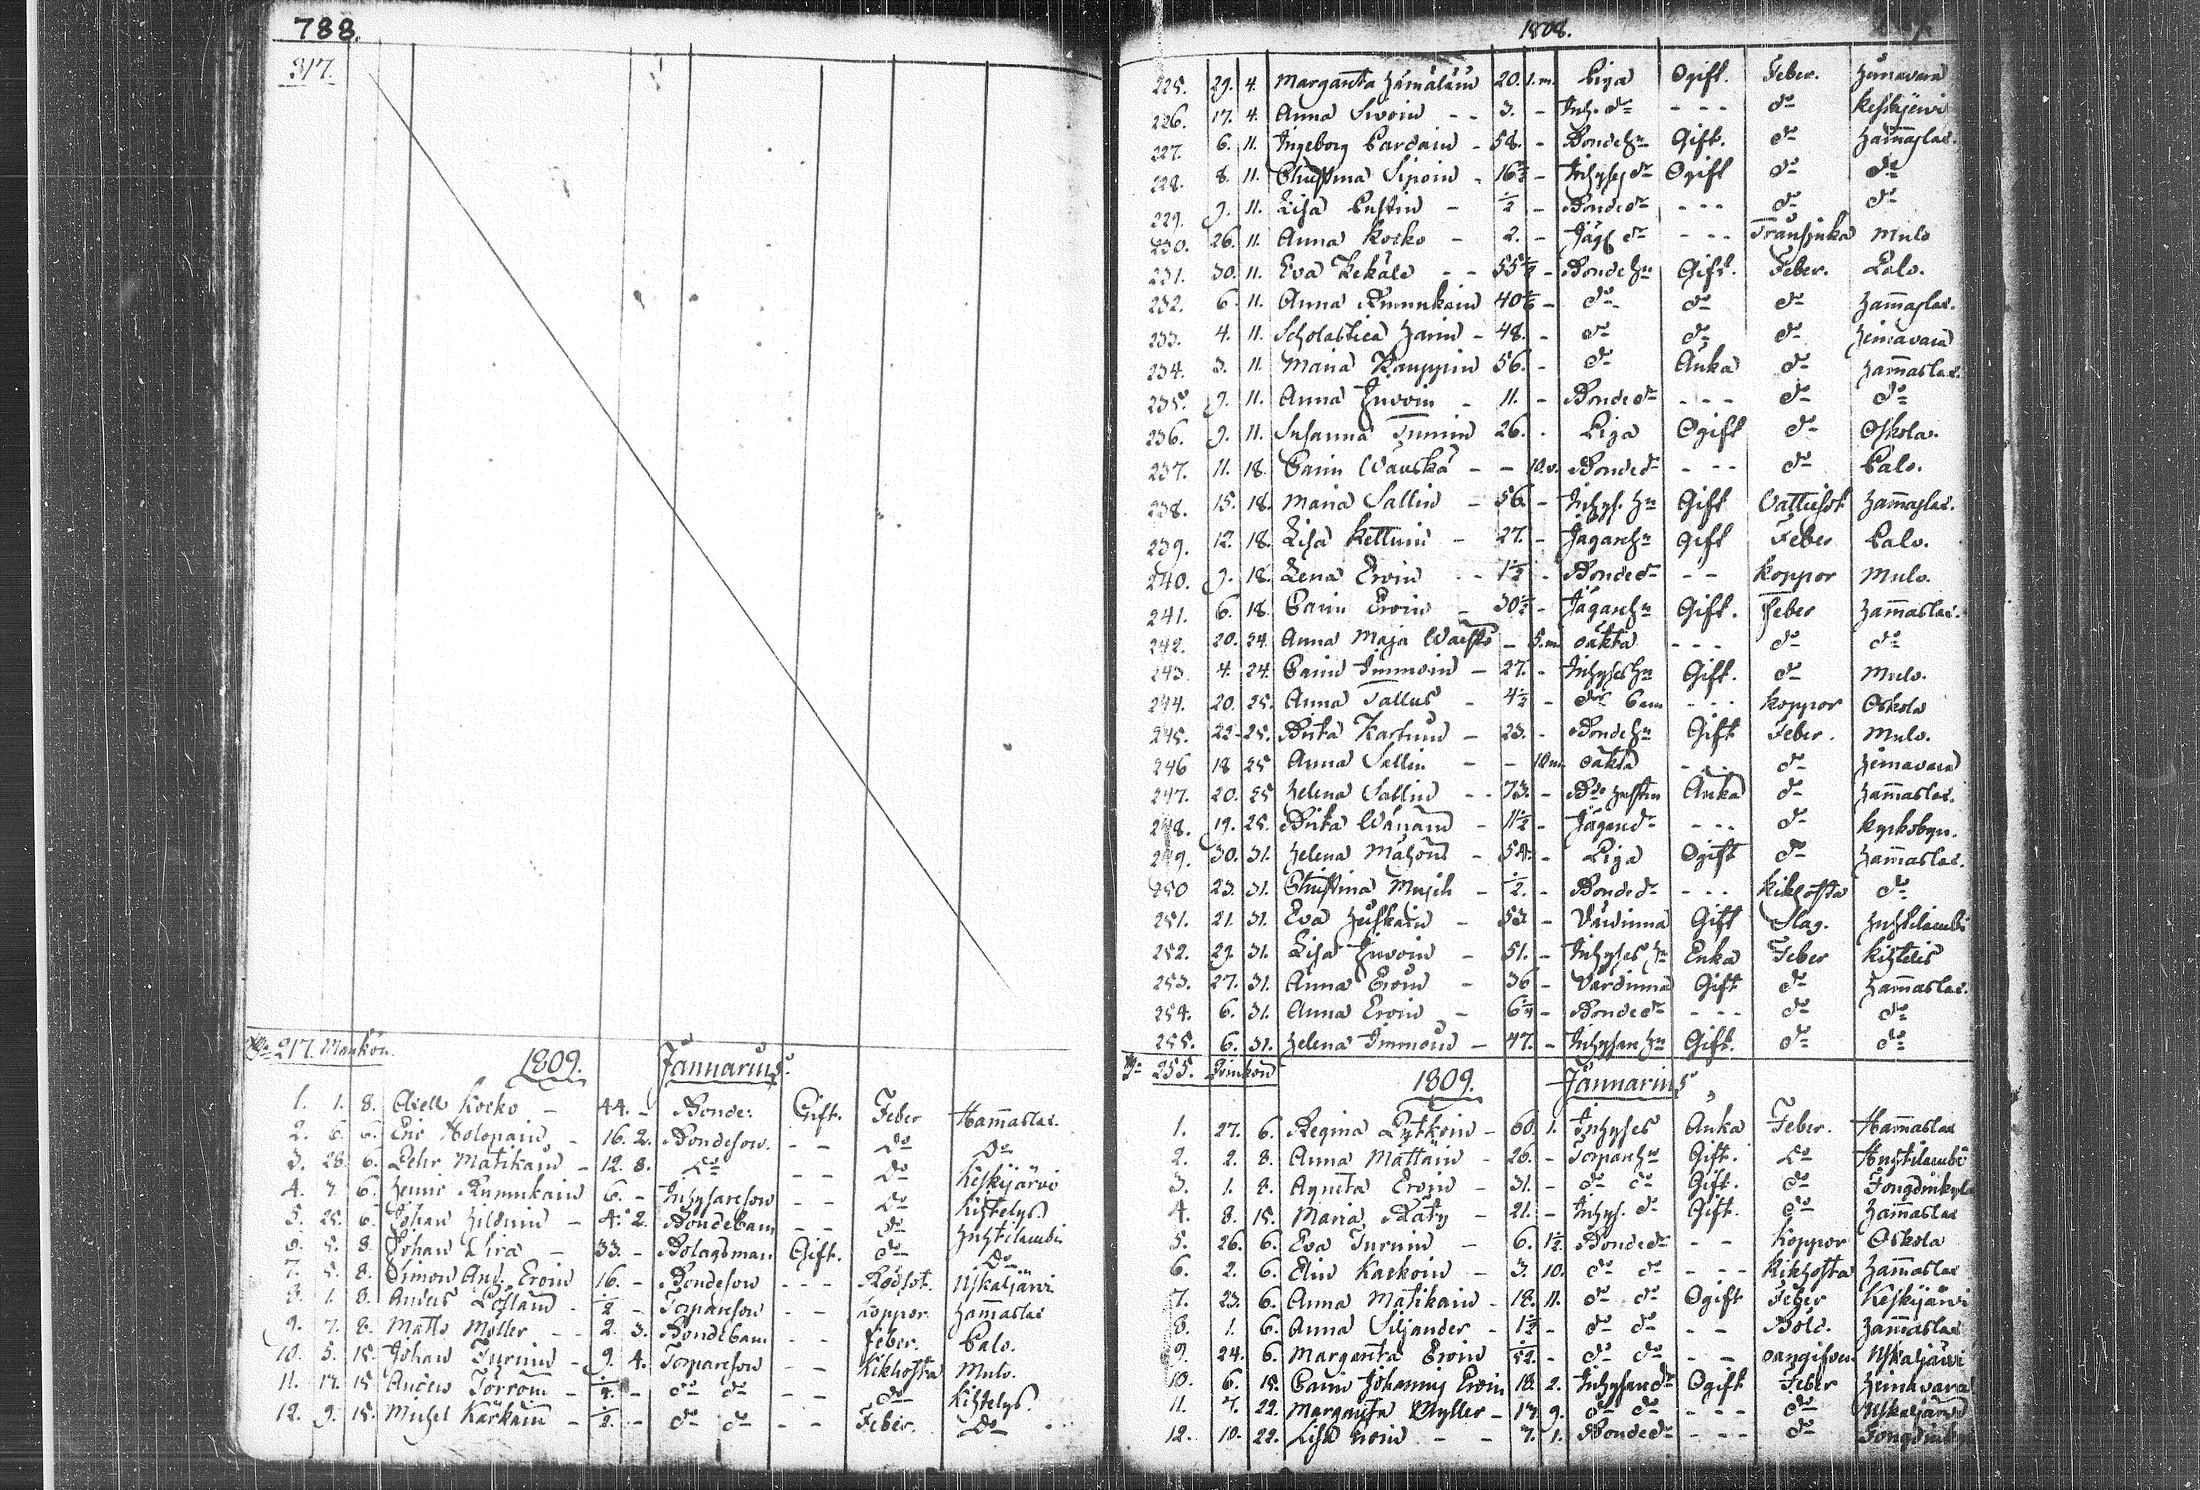 788.
317.
Sa 217. Mankön.
1809. Januarius.
1. 1. 8. Axell Kocko - 44. - Bonde. Gift. Feber Hamaslax.
2. 6. 6. Eric Holopain - 16. 2. Bondeson. - - Do Do
3. 28. 6. Pehr Matikain - 12. 8. Do - - Do Keskijärvi
4. 7. 6. Henric Rumukain 6. - Inhysareson - - Do Kihtelys
5. 25. 6. Johan - 4. 2. Bondebarn - - do
8. Johan - 33. - Bolagsman Gift. do Do
7. 5. 8. Simon And. Eroin 16. - Bondeson - - - Rödsot. Uskaljärvi
8. 1. 8. Anders Löfland - 1/2 - Torpareson - - koppor. hamaslax
9. 7. 8. Matts Möller - - 2. 3. Bondebarn - - feber. Palo.
10. 5. 15. Johan Turuin - 9. 4. Torpareson - - Kikhosta Mulo.
11. 17. 15. Anders Torroin - - do do - - do Kihtelys.
12. 9. 15. Michel Kärkäin - 1/2. - do do - - Feber. Do
1808.
225. 29. 4. Margareta Hämäläin 20. 1.m. Piga Ogift. Feber. Heinävara
226. 17. 4. Anna Sivoin - - 3. - Inh. dr - - - do Keskijervi
227. 6. 11. Ingeborg Pardain - 58. - Bondehu Gift. do Hamaslax.
228. 8. 11. Christina Sipoin - 16 1/2 - Inhyses dr Ogift do do
229. 9. 11. Lisa - 1/2 - Bonde dr - - - do do
230. 26. 11. Anna Kocko - 2. - Jäg. dr - - - Mulo
231. 30. 11. Eva Kekäle - - 55 1/2 - Bondehu Gift. Feber. Polo.
232. 6. 11. Anna Rumukain 40 - do do do Hamaslax.
233. 4. 11. Scholastica Harin - 48. - do do do Heinävara
234. 3. 11. Maria Kauppin 56. - do Änka do Hamaslax.
235. 9. 11. Anna Juvoin - 11. - Bonde dr - - - do do
236. 9. 11. Susanna Turuin 26. - Piga Ogift do Oskola.
237. 11. 18. Carin Wauska - - 10.v. Bonde dr - - - do Palo.
238. 15. 18. Maria Sallin - 56. - Inhys. hu Gift Vattusot Hamaslax.
239. 12. 18. Lisa Kettuin - 27. - Jägarehu Gift Feber Palo.
240. 9. 18. Lena Eroin - - 1 1/2 - Bonde dr - - Koppor Mulo.
241. 6. 18. Carin Eroin - 30 1/2 - Jägarehu Gift. Feber Hamaslax.
242. 20. 24. Anna Maja - 5.m. oäkta - - - do do
243. 4. 24. Carin Immoin - 27. - Inhyseshu Gift. do Mulo.
244. 20. 25. Anna Tallus - 4 1/2 - do barn - - - koppor Oskola
245. 22. 25. Brita Karhuin - 23. - Bondehu Gift Feber. Mulo.
246 18 25 Anna Sallin - - 10m oäkta - - - do Heinävara
247. 20. 25 Helena Sallin - - 73. - Bde hustru Änka do Hamaslax.
248. 19. 25. Brita Wänäin - 1 1/2 - Jägaredr - - - do Kyrkobyn.
249. 30. 31. Helena Mähöin - 54. - Piga Ogift do Hamaslax.
250 23. 31. Christina - 1/2. - Bonde dr - - - kikhosta do
251. 21. 31. Eva Huskain - 53 - Värdinna Gift Slag. Huhtilambi
252. 29. 31. Lisa Juvoin - 51. - Inhyses hu Enka Feber Kihtelis
253. 27. 31. Anna Eroin - 36 - Värdinna Gift do Hamaslax.
254. 6. 31. Anna Eroin - 6 - Bonde dr - - - do do
255. 6. 31. Helena Immoin - 47. - Inhysan hu Gift. do do
Sa 255. Qvinkön
1809. Januarius
1. 27. 6. Regina Pytkoin - 60. 1. Inhyses Änka Feber. Hamaslax
2. 2. 8. Anna Mattain - 26. - Torparehu Gift. Do Huhtilambi
3. 1. 8. Agneta Eroin - 31. - do do Gift. do
4. 8. 15. Maria Räty - 21. - Inhys. do Gift. do Hamaslax
5. 26. 6. Eva Turuin - 6. 1 1/2. Bonde dr - - Koppor Oskola
6. 2. 6. Elin Karkoin - 3. 10. do do - - - Kikhosta Hamaslax
7. 23. 6. Anna Matikain - 18. 11. do do Ogift Feber Keskijärvi
8. 1. 6. Anna Siljander - 1 1/2 - do do - - Bold. Hamaslax
9. 24. 6. Margareta Eroin - do do - - oangifven Uskaljärvi
10. 6. 15. Carin Johanny Eroin 18. 2. Inhysaredr Ogift Feber Heinävara
11. 7. 22. Margareta Myller - 17. 9. do do - - - do Uskaljärvi
12. 10. 22. Lisa - - 7. 1. Bonde dr - - - do